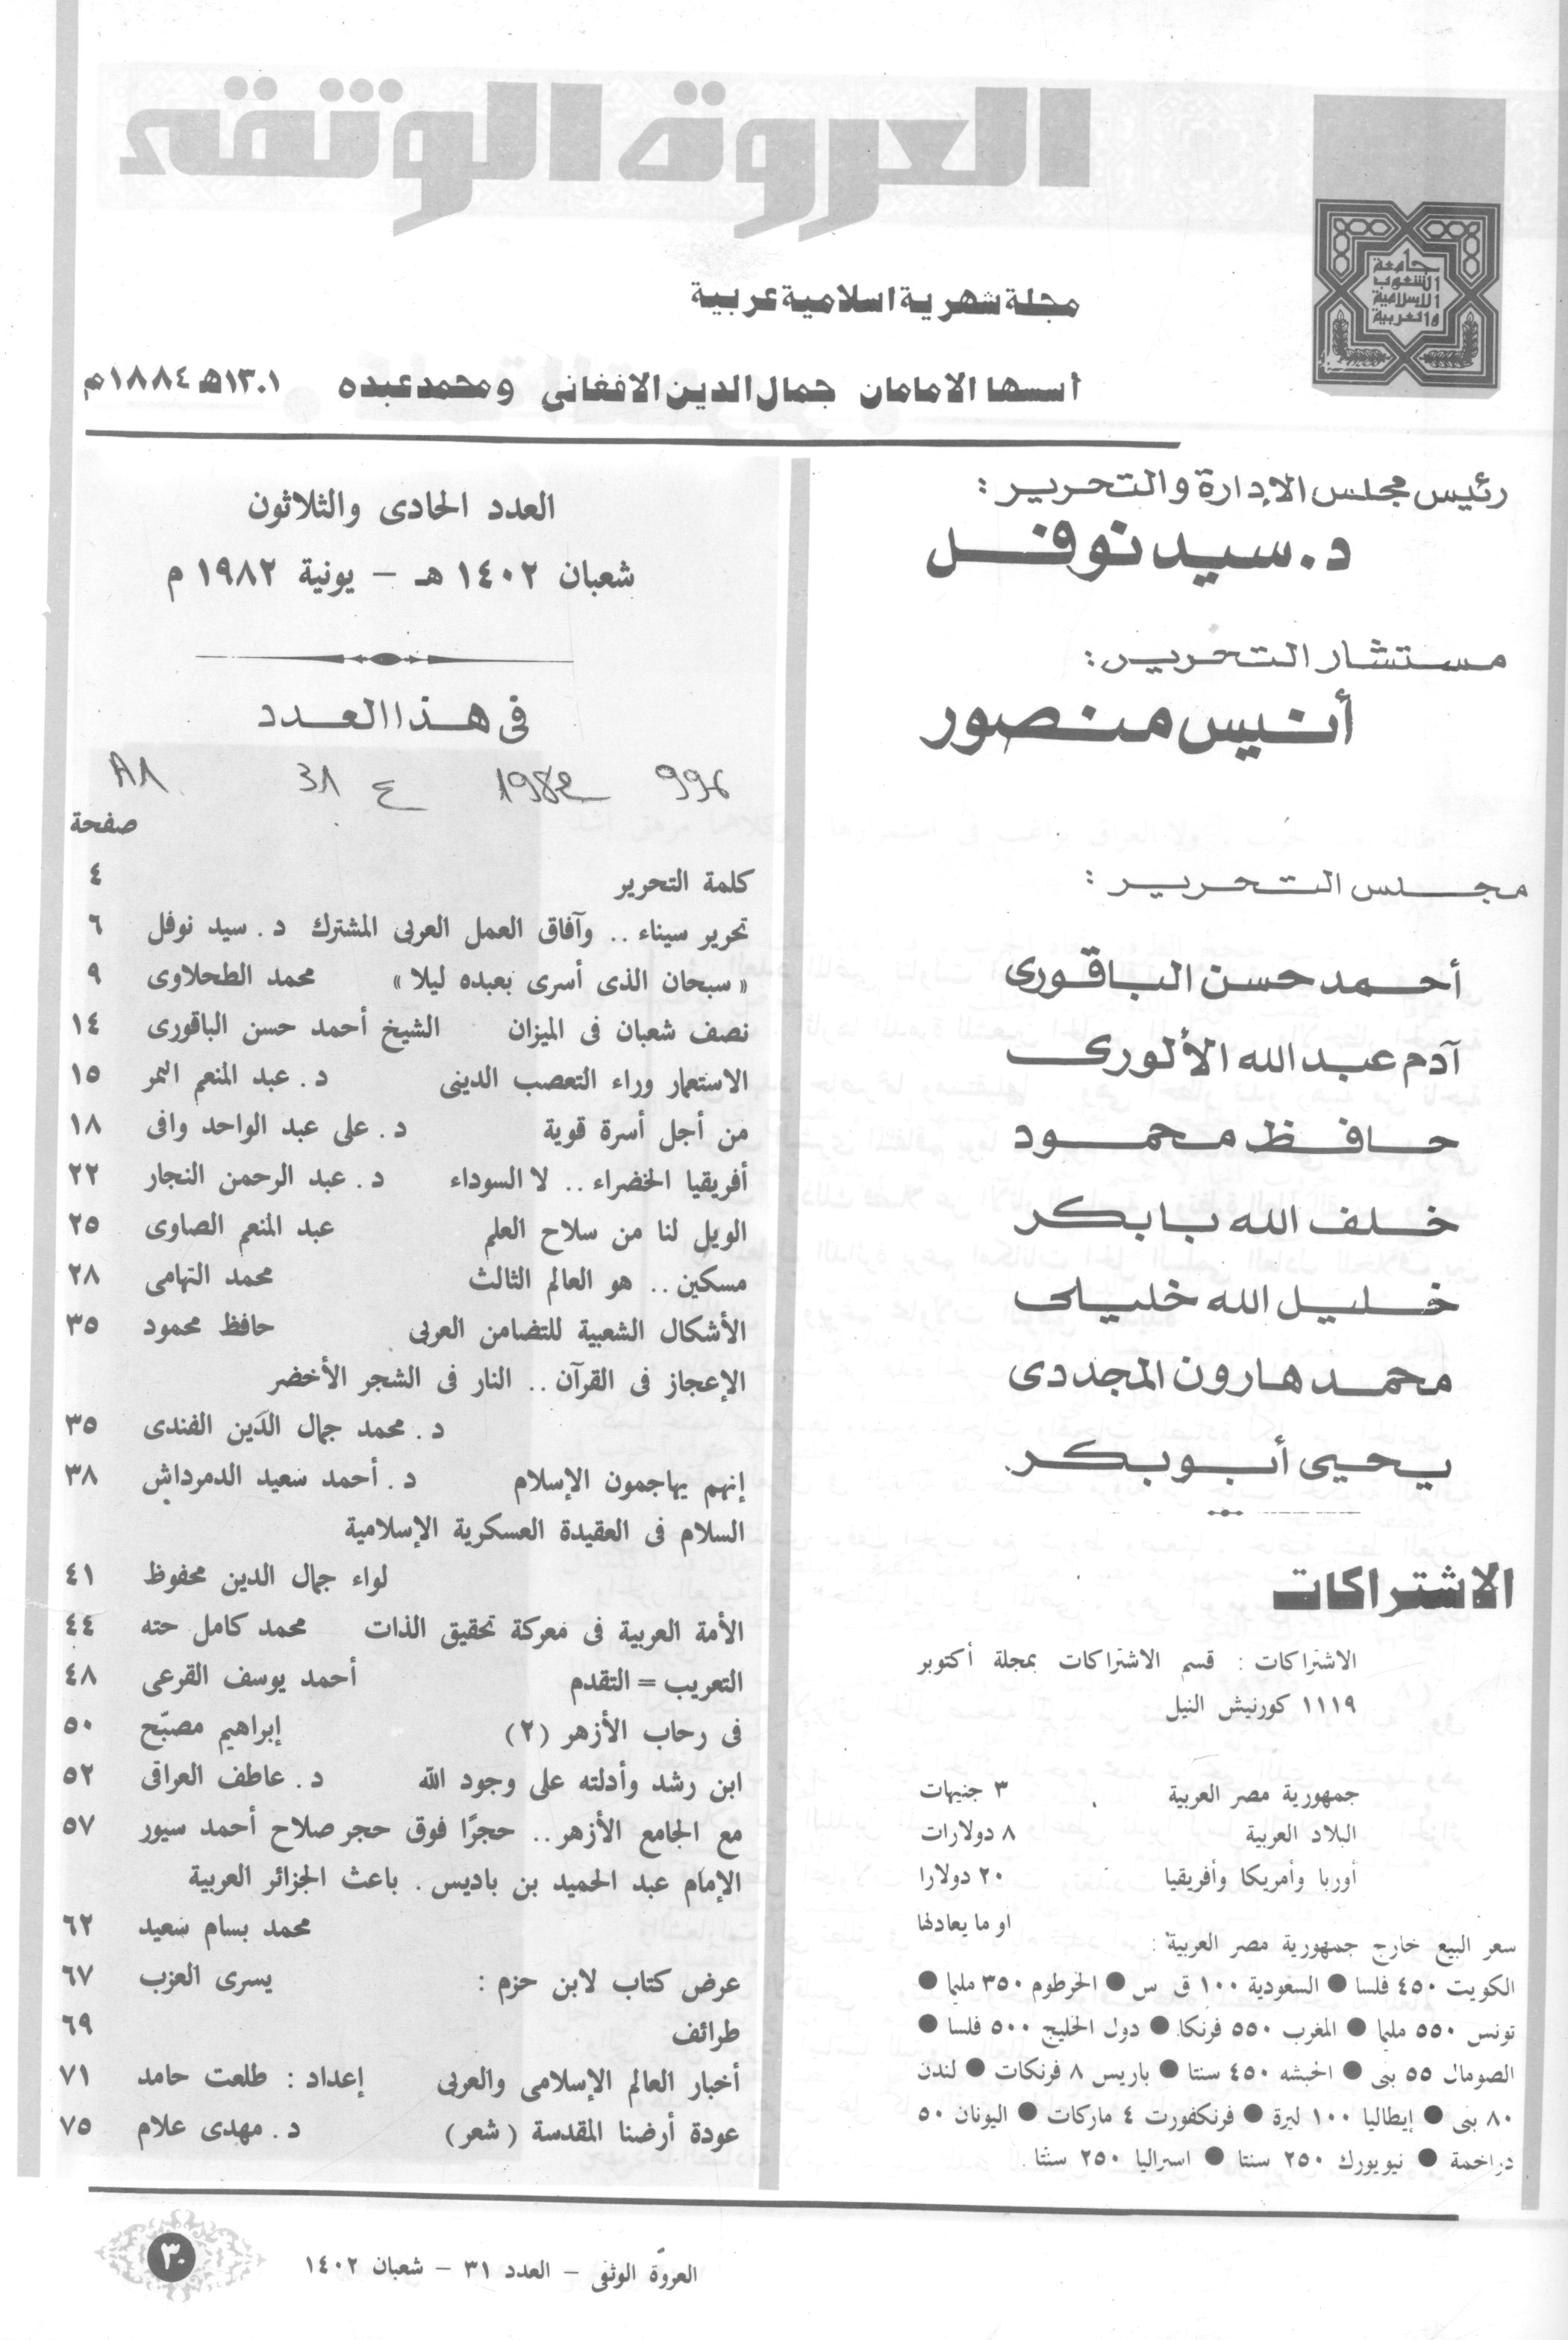 العروة الوثقى
جامعة
الشعوب
الإسلامية
والعربية
مجلة شهرية اسلامية عربية
أسسها الامامان جمال الدين الافغانى ومحمد عبده ١٣٠١هـ ١٨٨٤م
رئيس مجلس الإدارة والتحرير :
د. سيد نوفل
مستشار التحرير :
أنيس منصور
مجلس التحرير :
أحمد حسن الباقورى
آدم عبد الله الألورى
حافظ محمود
خلف الله بابكر
خليل الله خليلى
محمد هارون المجددى
يحيى أبو بكر
الاشتراكات
الاشتراكات : قسم الاشتراكات بمجلة أكتوبر
١١١٩ كورنيش النيل
جمهورية مصر العربية ٣ جنيهات
البلاد العربية ٨ دولارات
أوربا وأمريكا وأفريقيا ٢٠ دولارا
او ما يعادلها
سعر البيع خارج جمهورية مصر العربية :
الكويت ٤٥٠ فلسا ● السعودية ١٠٠ ق س ● الخرطوم ٣٥٠ مليما ●
تونس ٥٥٠ مليما ● المغرب ٥٥٠ فرنكا ● دول الخليج ٥٠٠ فلسا ●
الصومال ٥٥ بنى ● الحبشه ٤٥٠ سنتا ● باريس ٨ فرنكات ● لندن
٨٠ بنى ● إيطاليا ١٠٠ ليرة ● فرنكفورت ٤ ماركات ● اليونان ٥٠
دراخمة ● نيويورك ٢٥٠ سنتا ● استراليا ٢٥٠ سنتا .
العدد الحادى والثلاثون
شعبان ١٤٠٢ هـ - يونية ١٩٨٢ م
فى هذا العدد
996 1982 ع 31
صفحة
كلمة التحرير ٤
تحرير سيناء .. وآفاق العمل العربى المشترك د. سيد نوفل ٦
« سبحان الذى أسرى بعبده ليلا » محمد الطحلاوى ٩
نصف شعبان فى الميزان الشيخ أحمد حسن الباقورى ١٤
الاستعمار وراء التعصب الدينى د. عبد المنعم النمر ١٥
من أجل أسرة قوية د. على عبد الواحد وافى ١٨
أفريقيا الخضراء .. لا السوداء د. عبد الرحمن النجار ٢٢
الويل لنا من سلاح العلم عبد المنعم الصاوى ٢٥
مسكين .. هو العالم الثالث محمد التهامى ٢٨
الأشكال الشعبية للتضامن العربى حافظ محمود ٣٥
الإعجاز فى القرآن .. النار فى الشجر الأخضر
د. محمد جمال الدين الفندى ٣٥
إنهم يهاجمون الإسلام د. أحمد سعيد الدمرداش ٣٨
السلام فى العقيدة العسكرية الإسلامية
لواء جمال الدين محفوظ ٤١
الأمة العربية فى معركة تحقيق الذات محمد كامل حته ٤٤
التعريب = التقدم أحمد يوسف القرعى ٤٨
فى رحاب الأزهر (٢) إبراهيم مصبّح ٥٠
ابن رشد وأدلته على وجود الله د. عاطف العراقى ٥٢
مع الجامع الأزهر .. حجرًا فوق حجر صلاح أحمد سيور ٥٧
الإمام عبد الحميد بن باديس . باعث الجزائر العربية
محمد بسام سعيد ٦٢
عرض كتاب لابن حزم : يسرى العزب ٦٧
طرائف ٦٩
أخبار العالم الإسلامى والعربى إعداد : طلعت حامد ٧١
عودة أرضنا المقدسة ( شعر ) د. مهدى علام ٧٥
العروة الوثقى - العدد ٣١ - شعبان ١٤٠٢